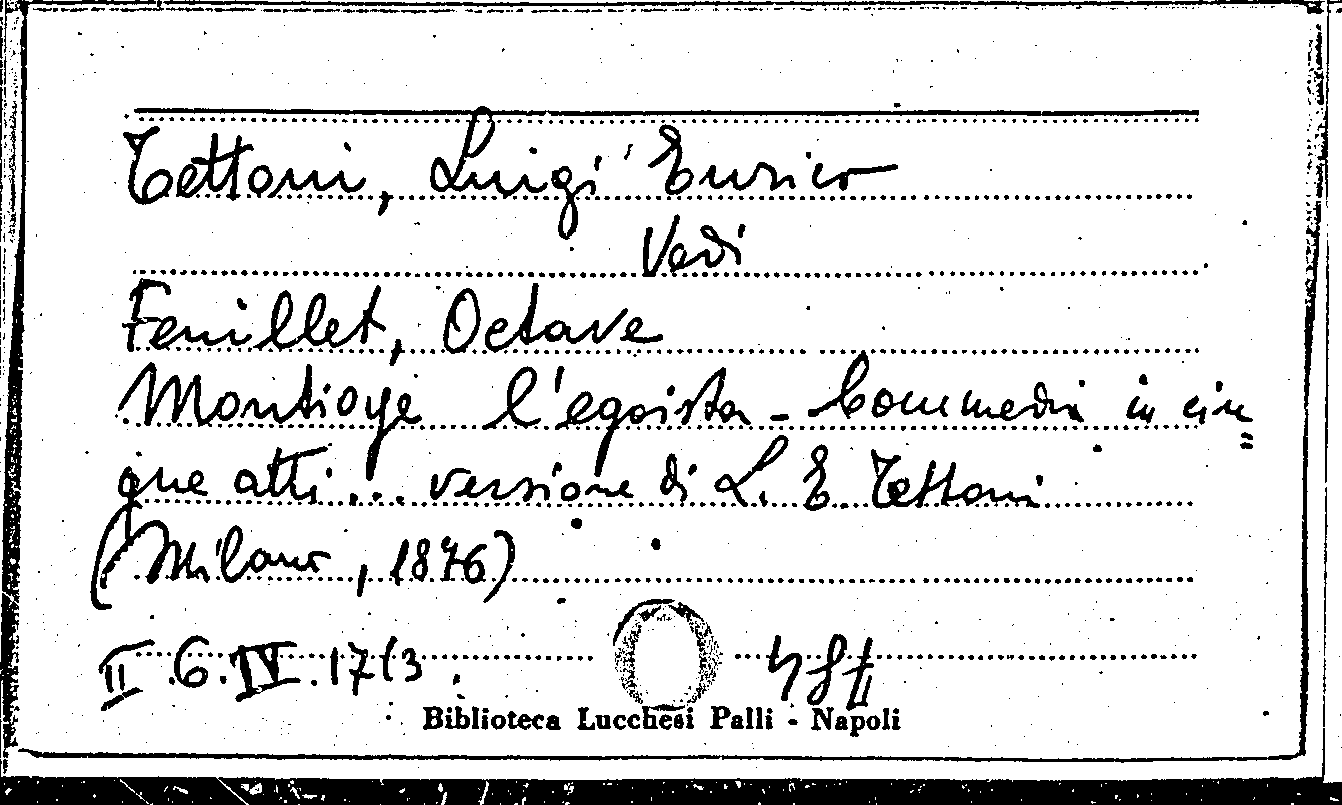 Tettoni, Luigi Enrico
Vedi
Feuillet, Octave
Montioye l'egoista - Commedia in cin=
que atti... versione di L. E. Tettoni
(Milano, 1876)
II.6.IV.17(3.
Biblioteca Lucchesi Palli - Napoli